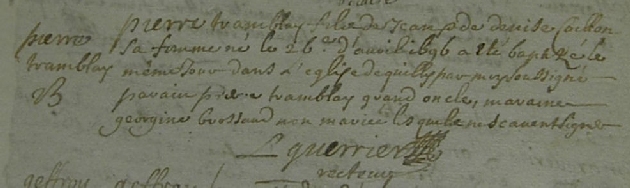 pierre
tramblay
B
pierre tramblay fils de Jean & de denise
sa femme né le 26e d'avril 1696 a été baptizé le
même Jour dans L'eglise de quilly par moy soussigné
parain pierre tramblay grand oncle, maraine
georgine brossaud non mariée lesquels ne scavent signer
L guerrier
recteur
geffroy